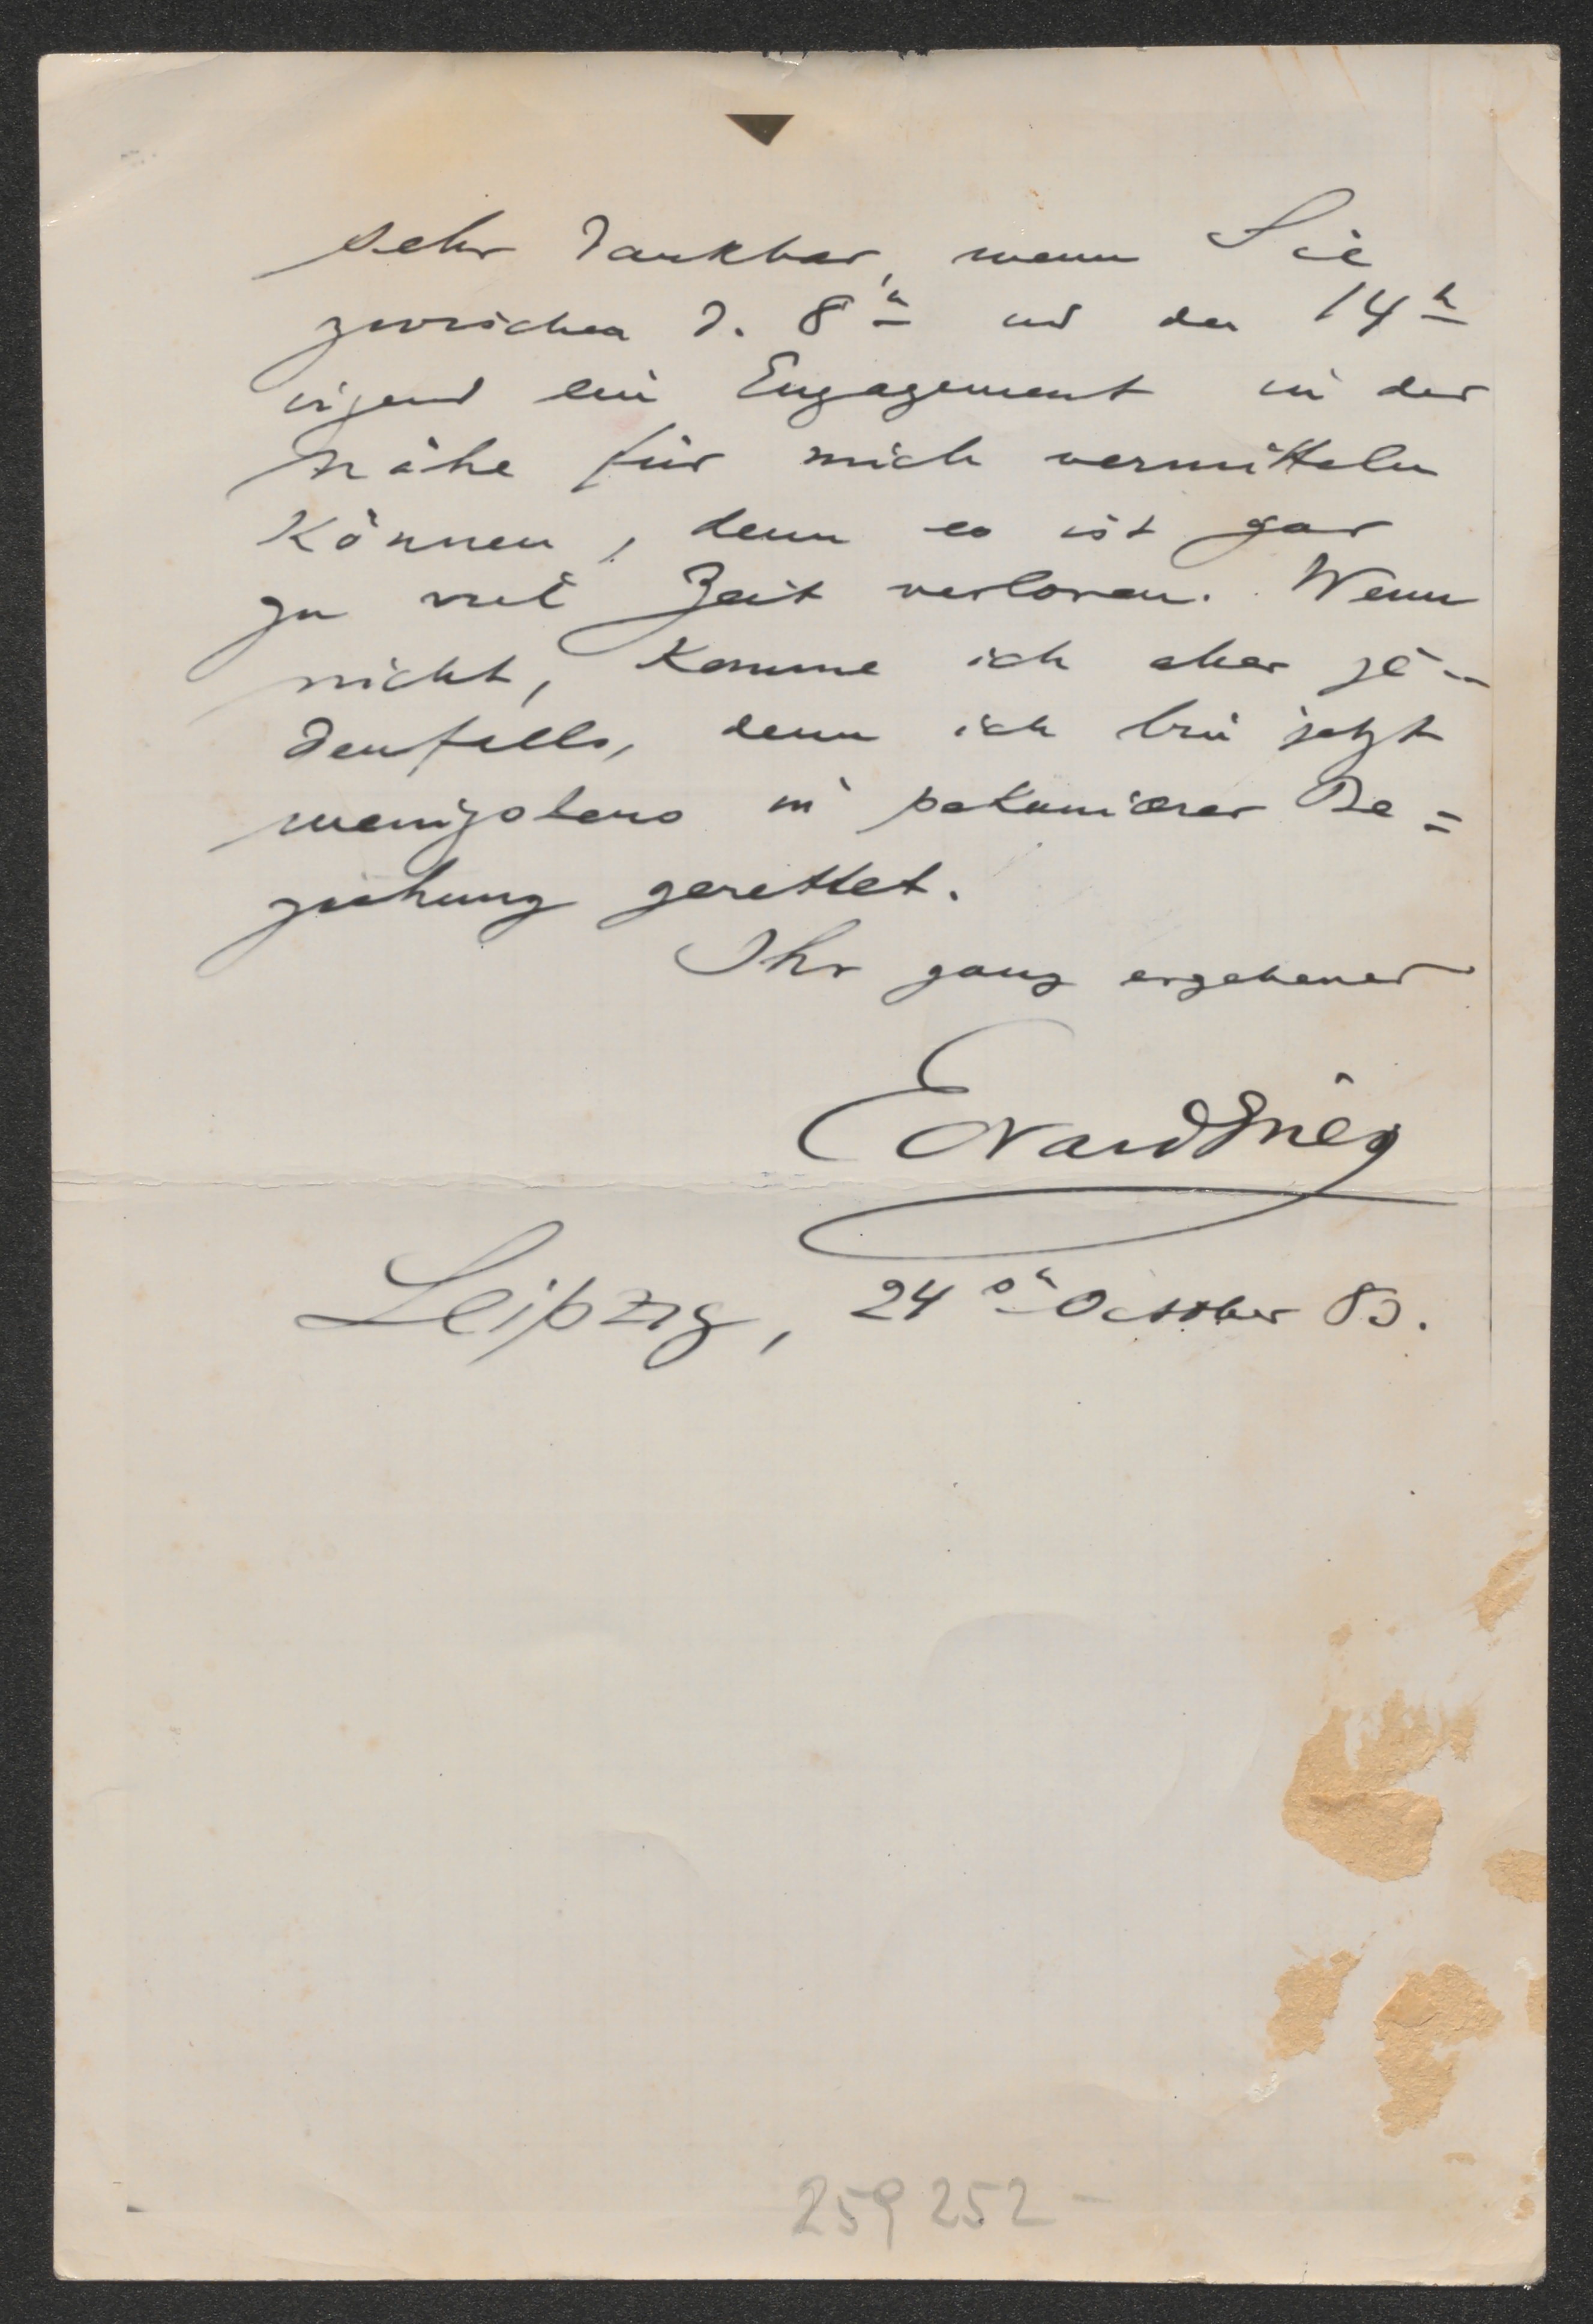 sehr dankbar, wenn Sie
zwischen d. 8n und den 14n
irgend ein Engagement in der
Nähe für mich vermitteln
können, denn es ist gar
zu viel Zeit verloren. Wenn
nicht, komme ich aber je-
denfalls, denn ich bin jetzt
wenigstens in pekuniærer Be=
ziehung gerettet.
Ihr ganz ergebener
Edvard Grieg
Leipzig, 24sn October 83.
259252-